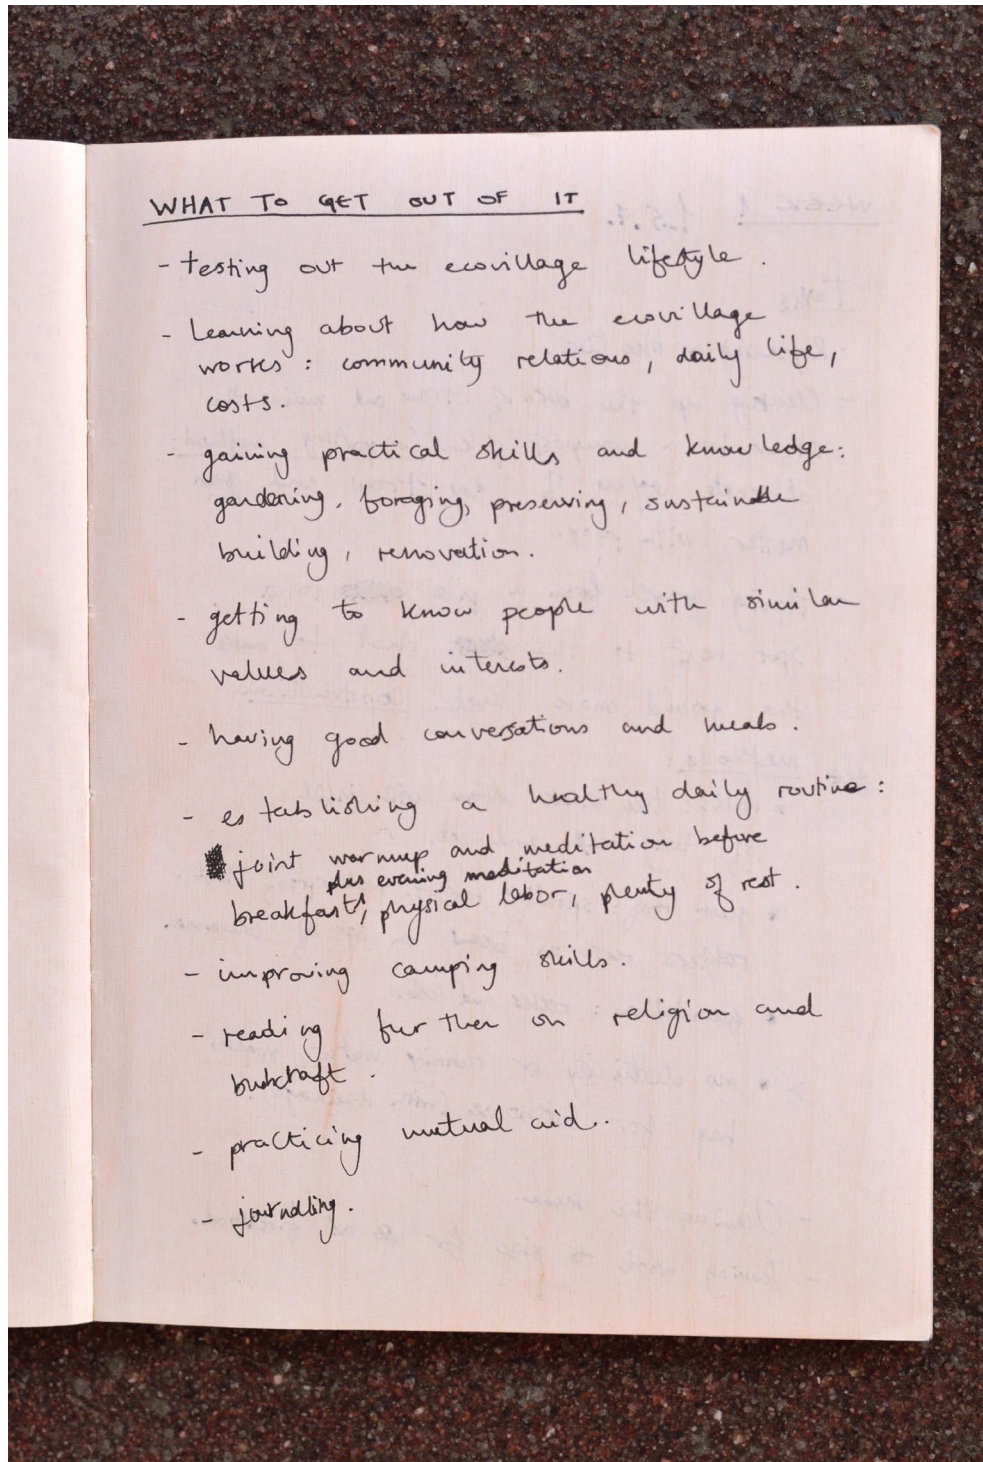 WHAT TO GET OUT OF IT
- testing out the ecovillage lifestyle.
- Learning about how the ecovillage
works: community relations, daily life,
costs.
- gaining practical skills and knowledge:
gardening, foraging, preserving, sustainable
building, renovation.
- getting to know people with similar
values and interests.
- having good conversations and meals.
- establishing a healthy daily routine:
joint warmup and meditation before
plus evening meditation
breakfast, physical labor, plenty of rest.
- improving camping skills.
- reading further on religion and
bushcraft.
- practicing mutual aid..
- journaling.